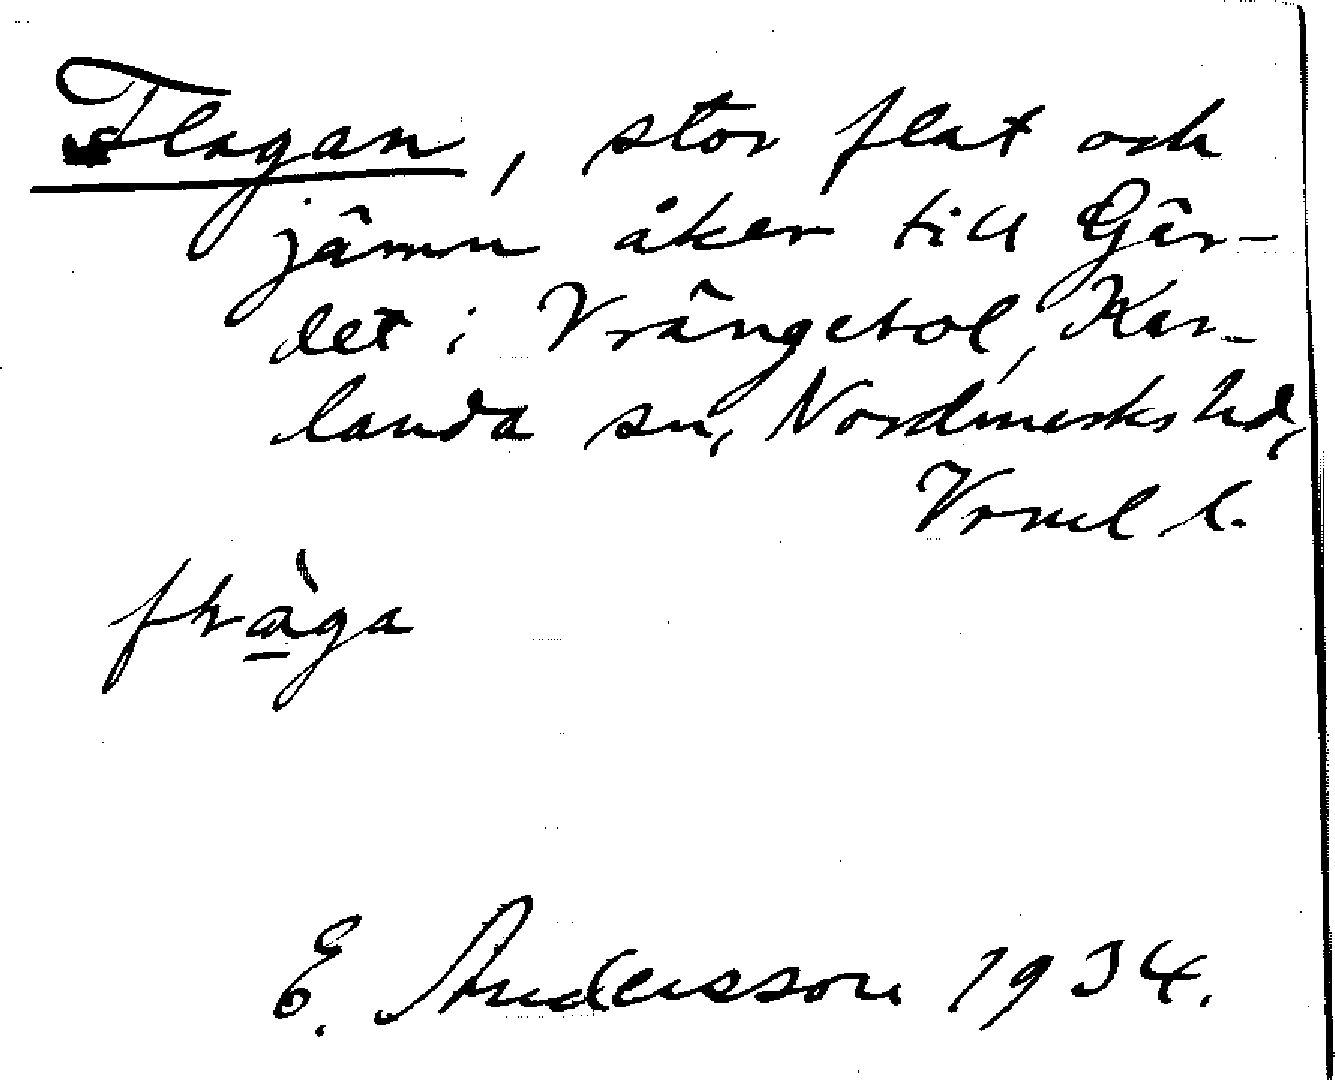 Flagan, stor flat och
jämn åker till Gär-
det i Vrängebol, Kar-
landa sn, Nordmarks hd,
Vrml l.
E. Andersson 1934.